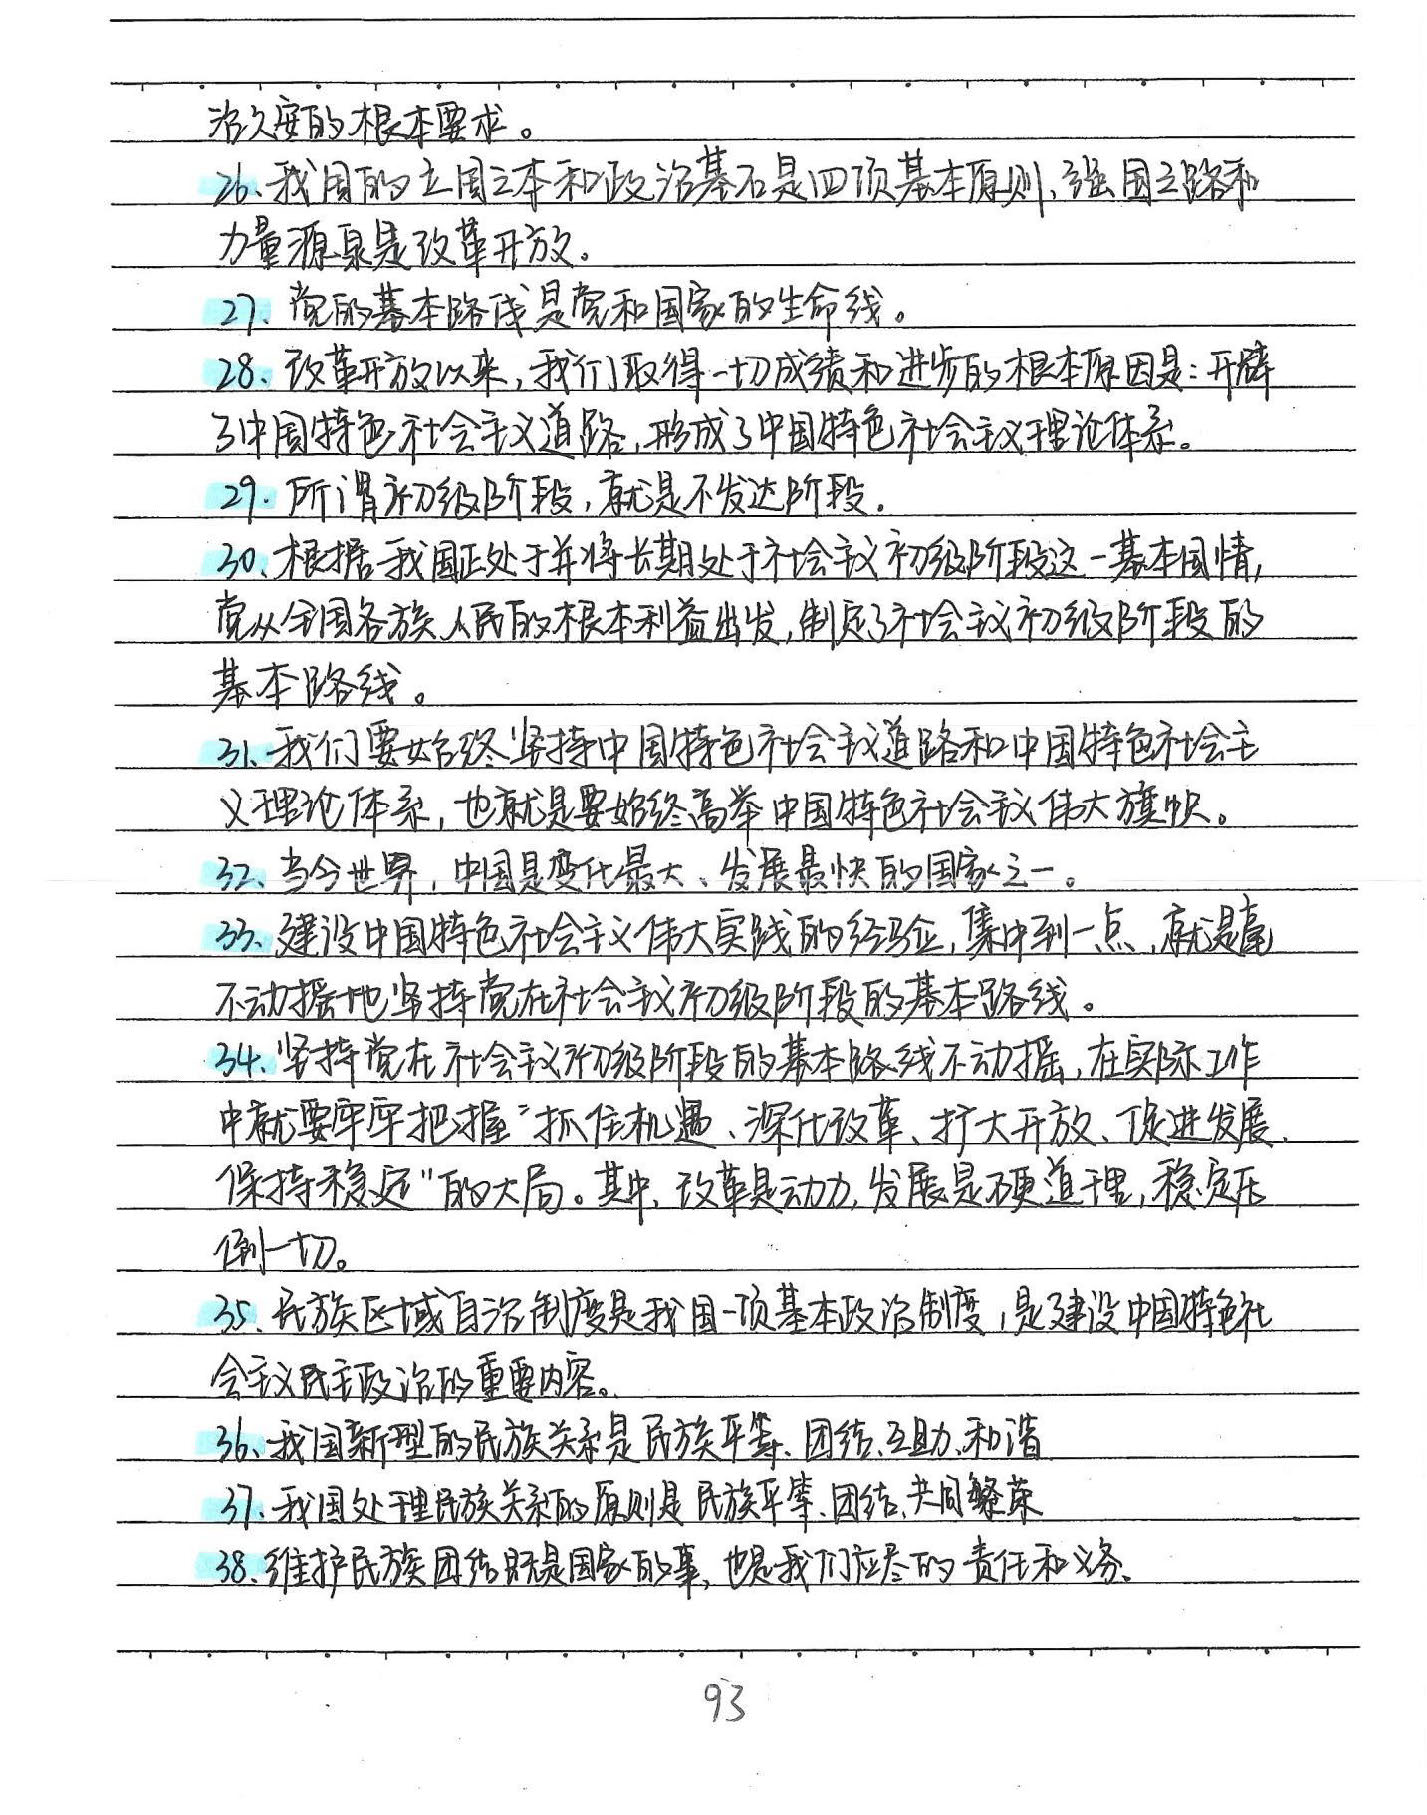 治久安的根本要求。
26、我国的立国之本和政治基石是四项基本原则、强国之路和
力量源泉是改革开放。
27、党的基本路线是党和国家的生命线。
28、改革开放以来，我们取得一切成绩和进步的根本原因是：开辟
了中国特色社会主义道路，形成了中国特色社会主义理论体系。
29、所谓初级阶段，就是不发达阶段。
30、根据我国正处于并将长期处于社会主义初级阶段这一基本国情，
党从全国各族人民的根本利益出发，制定了社会主义初级阶段的
基本路线。
31、我们要始终坚持中国特色社会主义道路和中国特色社会主
义理论体系，也就是要始终高举中国特色社会主义伟大旗帜。
32、当今世界，中国是变化最大、发展最快的国家之一。
33、建设中国特色社会主义伟大实践的经验，集中到一点，就是毫
不动摇地坚持党在社会主义初级阶段的基本路线。
34、坚持党在社会主义初级阶段的基本路线不动摇，在实际工作
中就要牢牢把握“抓住机遇、深化改革、扩大开放、促进发展、
保持稳定”的大局。其中，改革是动力，发展是硬道理，稳定压
倒一切。
35、民族区域自治制度是我国一项基本政治制度，是建设中国特色社
会主义民主政治的重要内容。
36、我国新型的民族关系是民族平等、团结、互助、和谐
37、我国处理民族关系的原则是民族平等、团结、共同繁荣
38、维护民族团结既是国家的事，也是我们应尽的责任和义务、
93